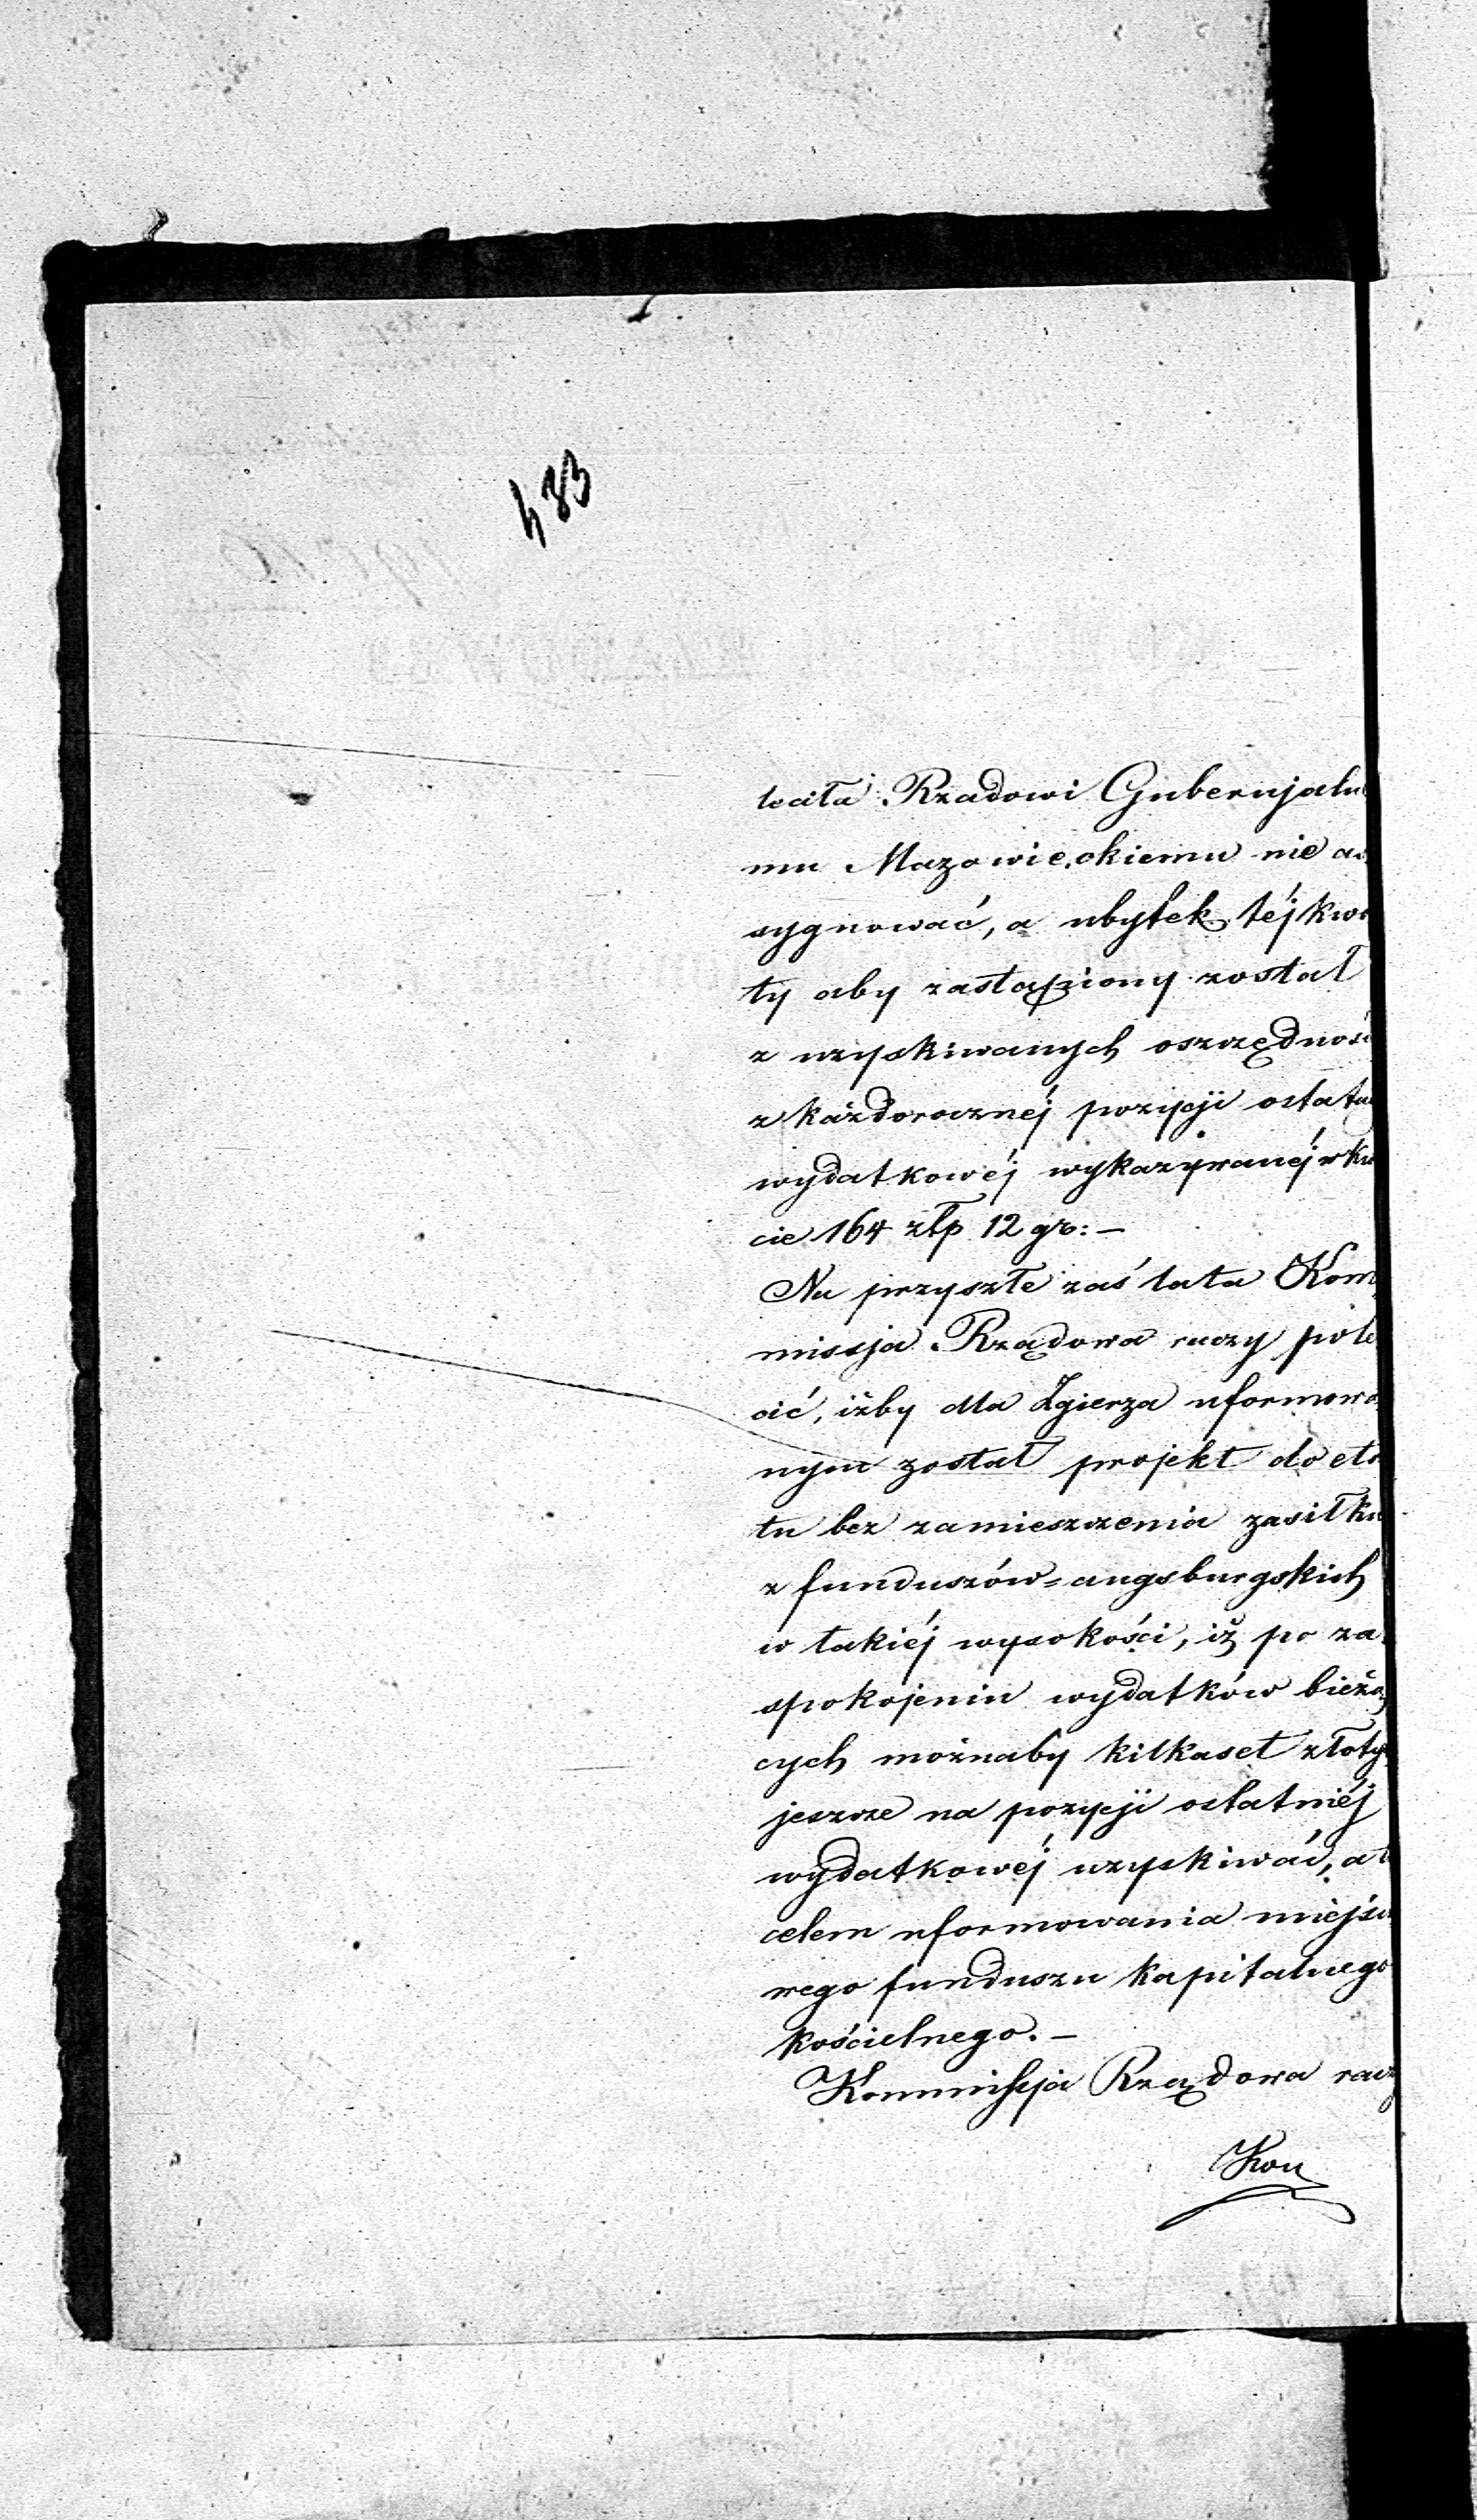 483
leciła Rządowi Gubernjalne
mu Mazowieckiemu nie as
sygnować, a ubytek téj kwo
ty aby zastąpiony został
z uzyskiwanych oszczędnośc
z każdorocznéj pozycji ostatn
wydatkowéj wykazywanéj w kwo
cie 164 złp 12 gr: —
Na przyszłe zaś lata Kom
missja Rządowa raczy pole
cić, iżby dla Zgierza uformowa
nym został projekt do eta
tu bez zamieszczenia zasiłku
z funduszów=augsburgskich
w takiéj wysokości, iż po za
spokojeniu wydatków bieżą
cych możnaby kilkaset złoty
jeszcze na pozycji ostatniéj
wydatkowéj uzyskiwać, a t
celem uformowania miejsco
wego funduszu kapitalnego
kościelnego. —
Kommissja Rządowa racz
Kon